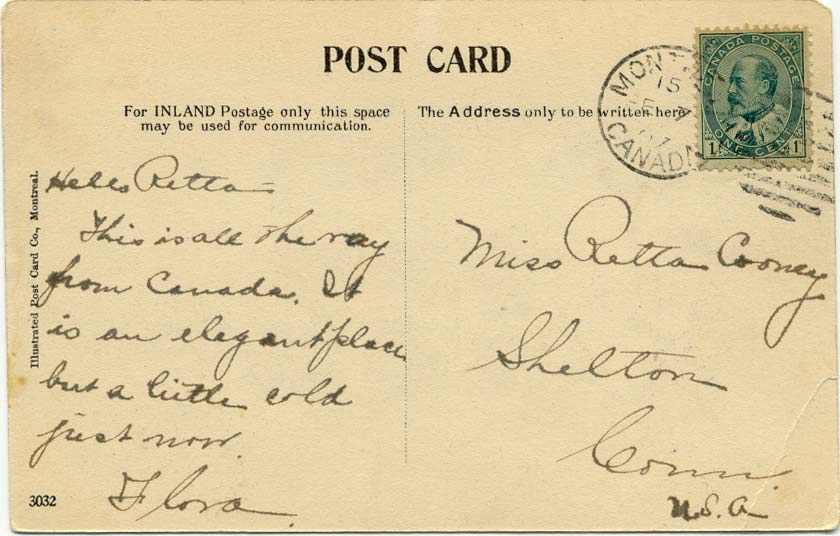 POST CARD
For INLAND Postage only this space
may be used for communication.
The Address only to be written here
MONT
15
07
CANADA
CANADA POSTAGE
1 ONE CENT 1
Illustrated Post Card Co., Montreal.
Hello Retta
This is all the way
from Canada. It
is an elegant place
but a little cold
just now.
Flora.
Miss Retta Cooney
Shelton
Conn.
U.S.A
3032